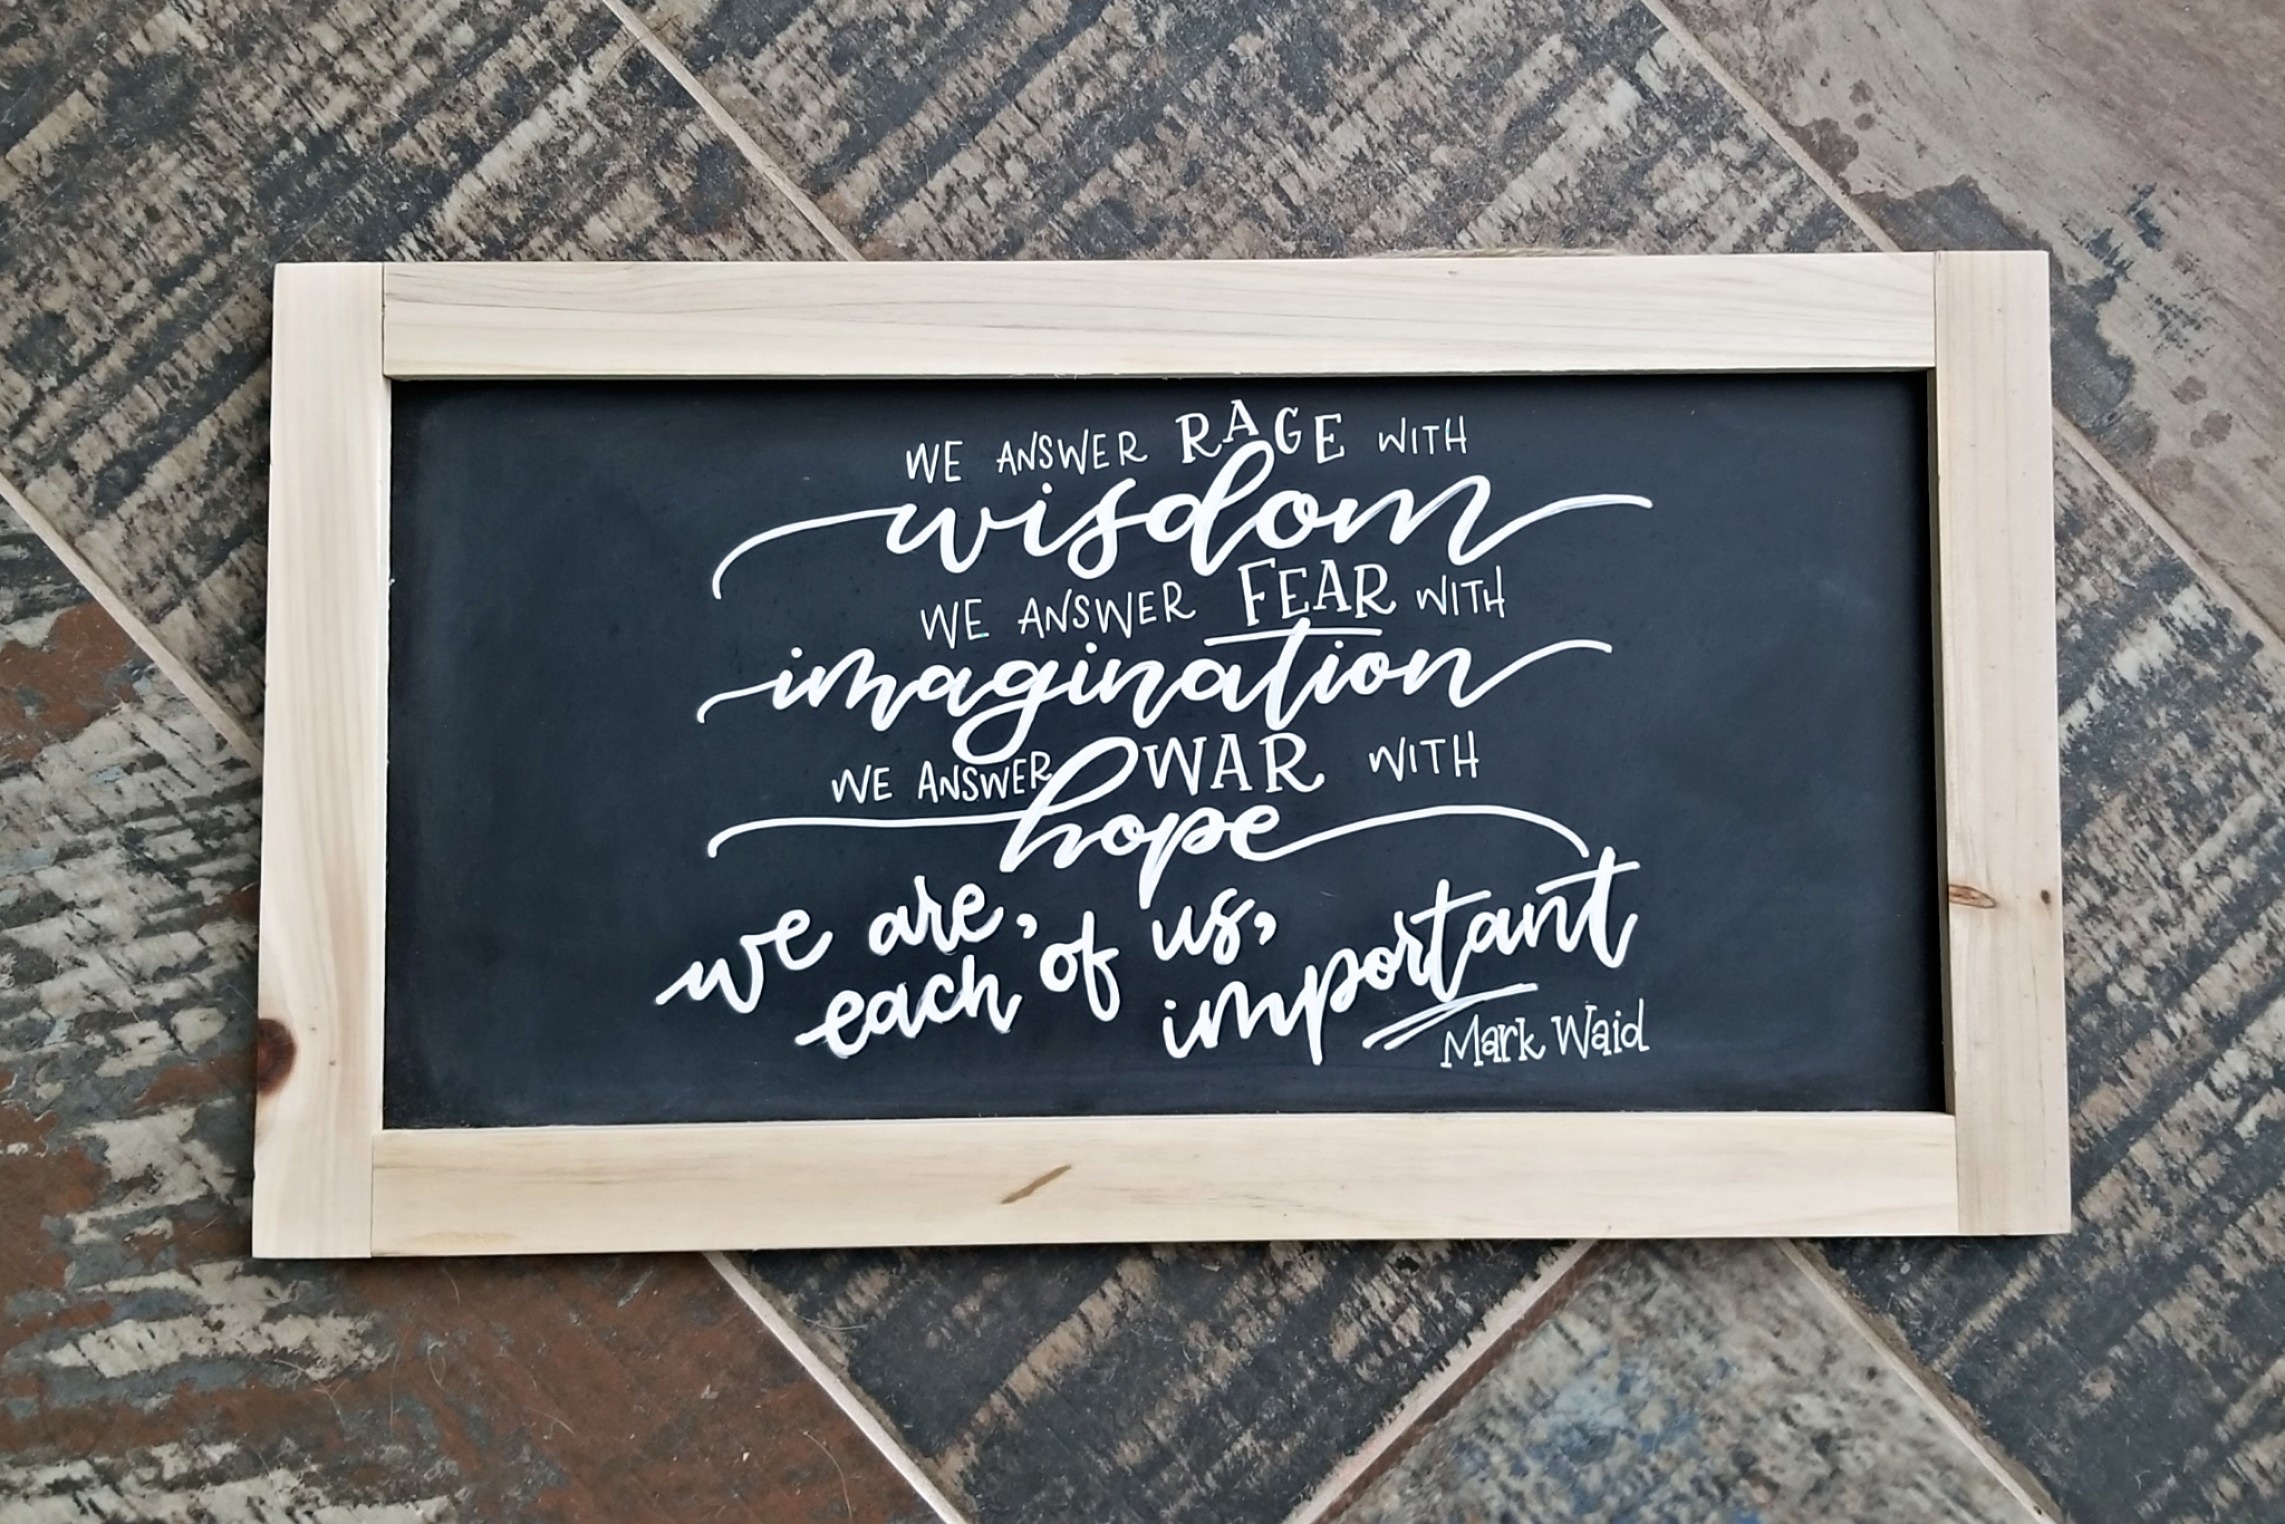 WE ANSWER RAGE WITH
wisdom
WE ANSWER FEAR WITH
imagination
WE ANSWER WAR WITH
hope
we are, each of us, important
Mark Waid